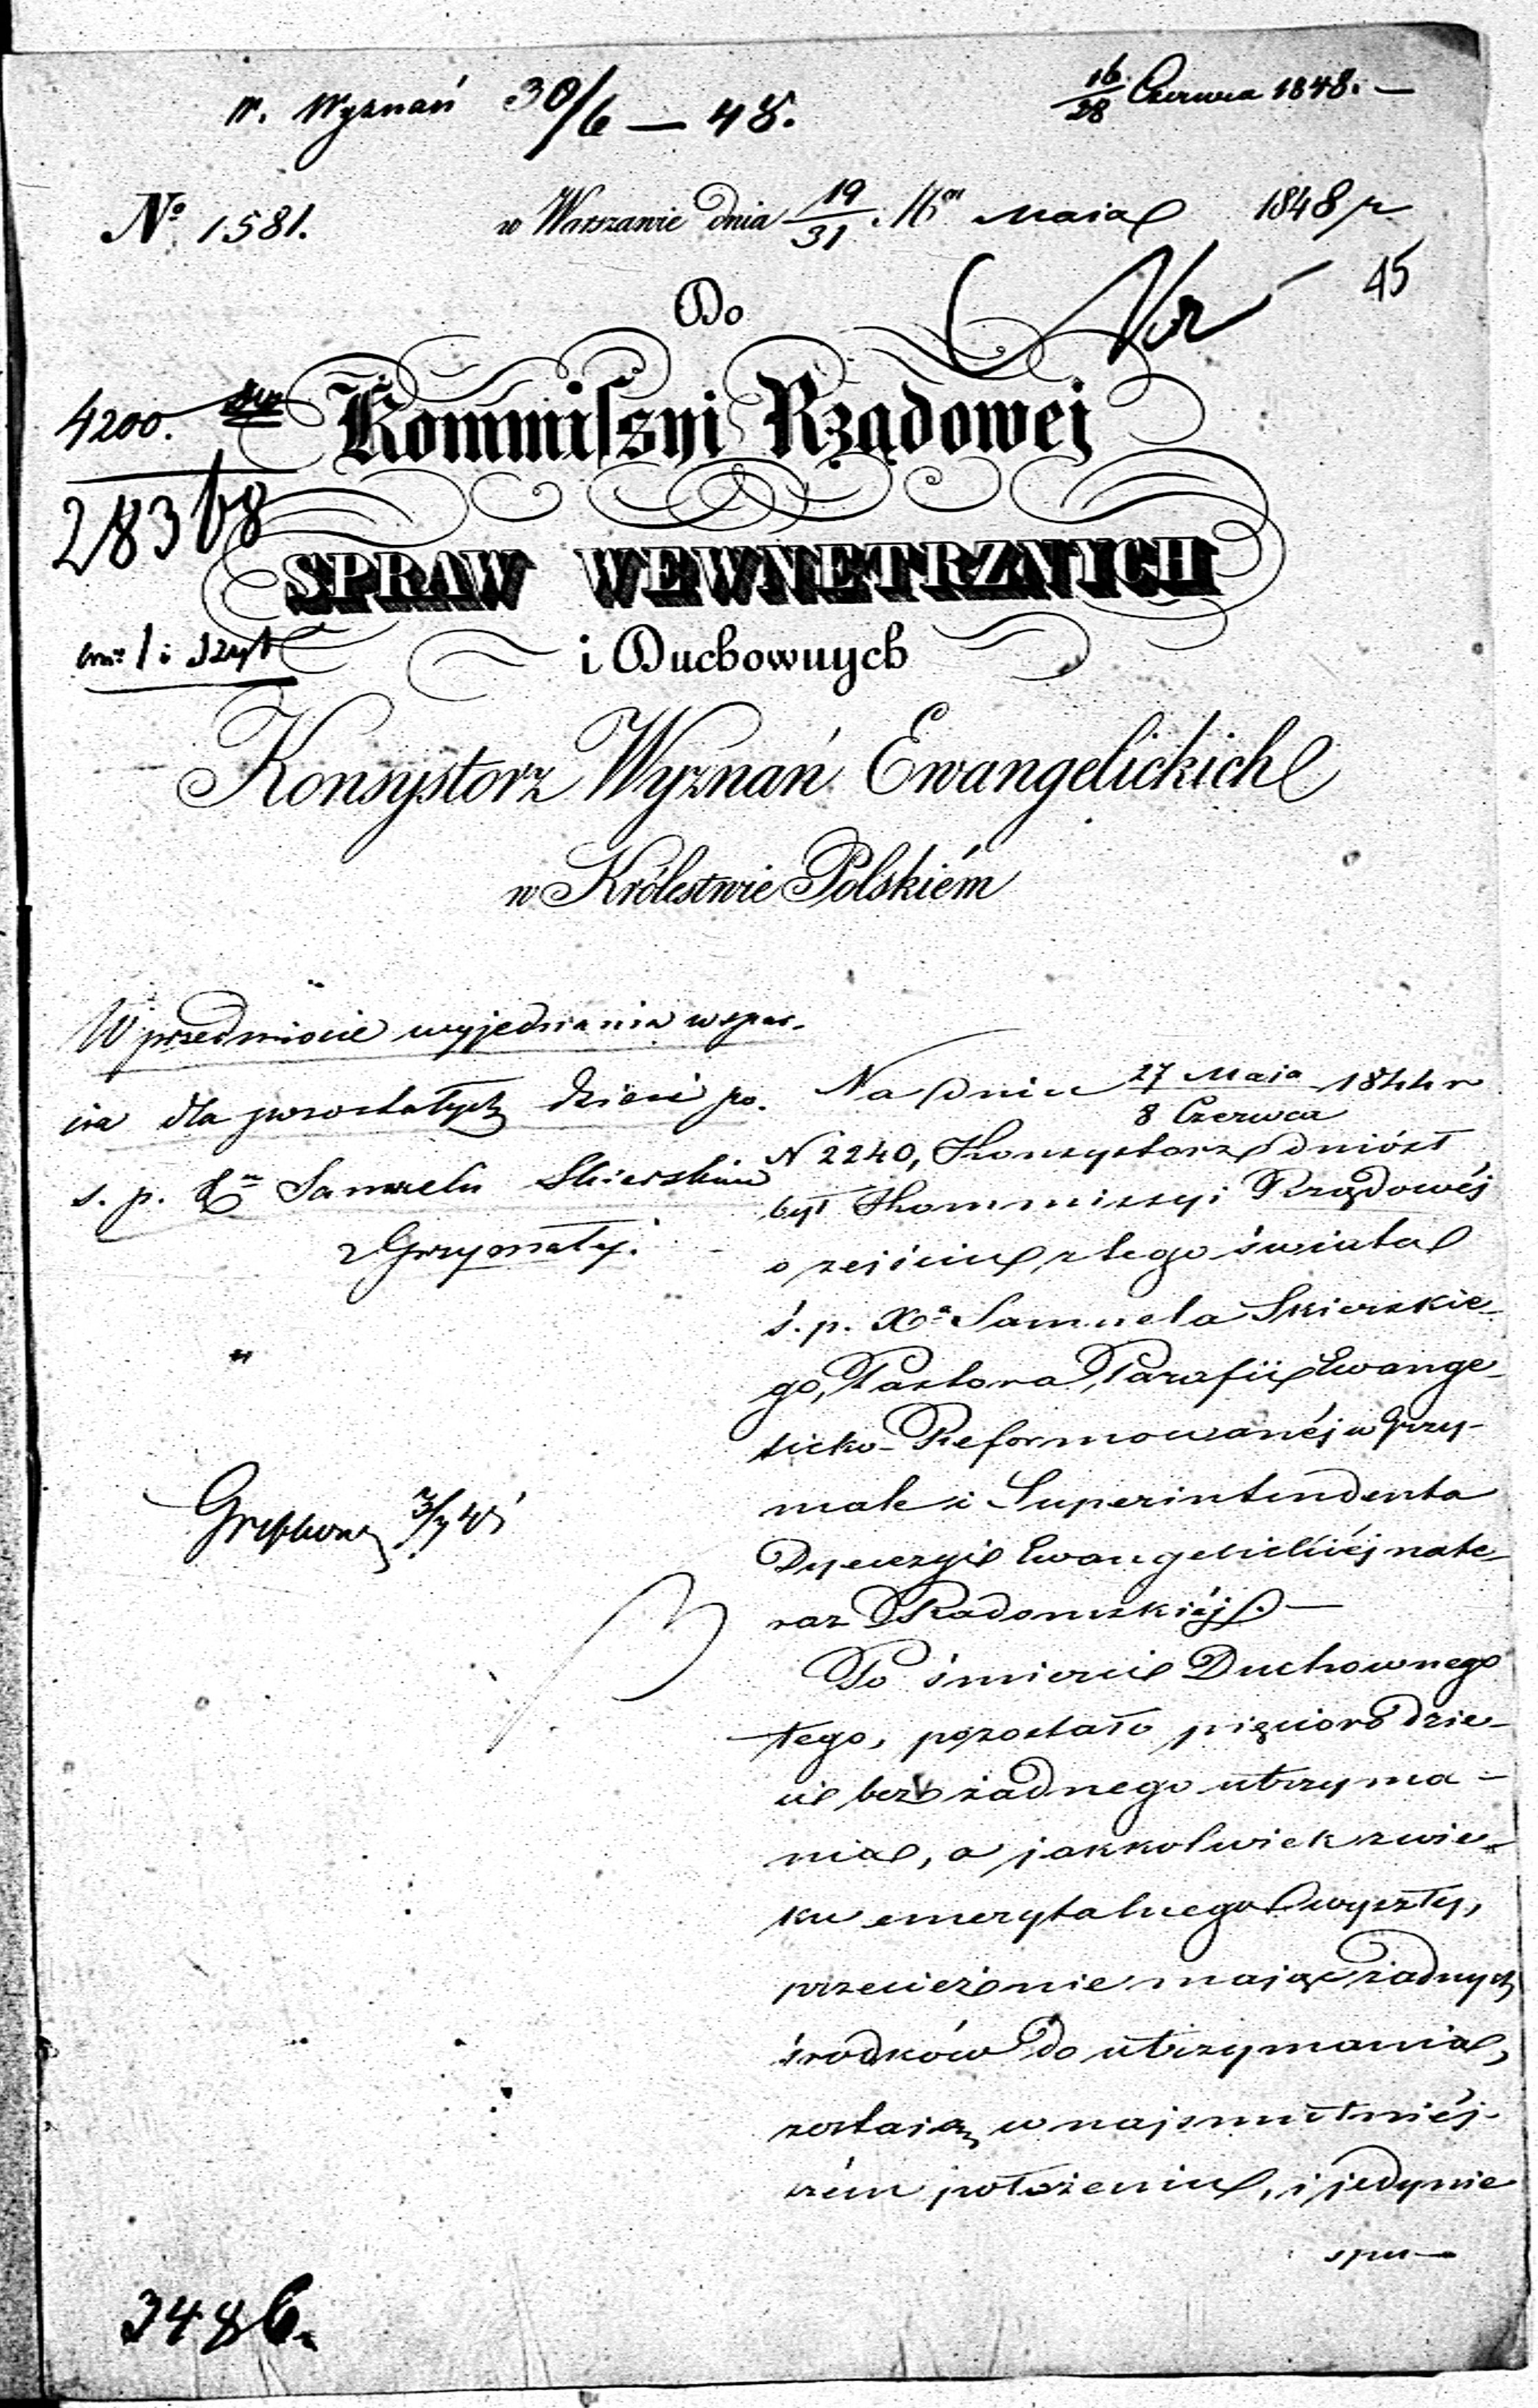 W. Wyznań 30/6 – 48.
16/28 Czerwca 1848. –
Nº 1581.
w Warszawie dnia 19/31 Maia 1848 r.
45
Do
4200.
Kommissyi Rządowej
28368
SPRAW WEWNĘTRZNYCH
i Duchownych
Konsystorz Wyznań Ewangelickich
w Królestwie Polskiém
W przedmiocie wyjednania wspar-
cia dla pozostałych dzieci po
s. p. Xu Samuelu Skierskim
z Grzymały.
Na dniu 27 Maia / 8 Czerwca 1844 r
N 2240, Konsystorz doniósł
był Kommissyi Rządowéj
o zejściu z tego świata
ś. p. Xa Samuela Skierskie-
go, Pastora Parafii Ewange-
licko-Reformowanéj w Grzy-
male i Superintendenta
Dyecezyi Ewangelickiéj nate-
raz Radomskiéj. –
Po śmierci Duchownego
tego, pozostało pięcioro dzie-
ci bez żadnego utrzyma-
nia, a jakkolwiek z wie-
ku emerytalnego wyszły,
przecież nie mając żadnych
środków do utrzymania,
zostaią w najsmutniéj-
szém położeniu, i jedynie
3/7 48
3486.